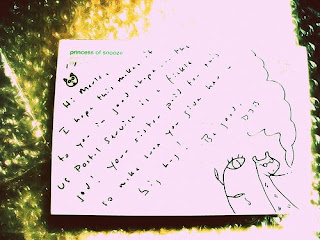 princess of snooze
Hi Merle,
I hope this makes it
to you in good shape... the
US Postal Service is a fickle
god! Your sister paid for this
so make sure you give her a
big hug!
Be good.